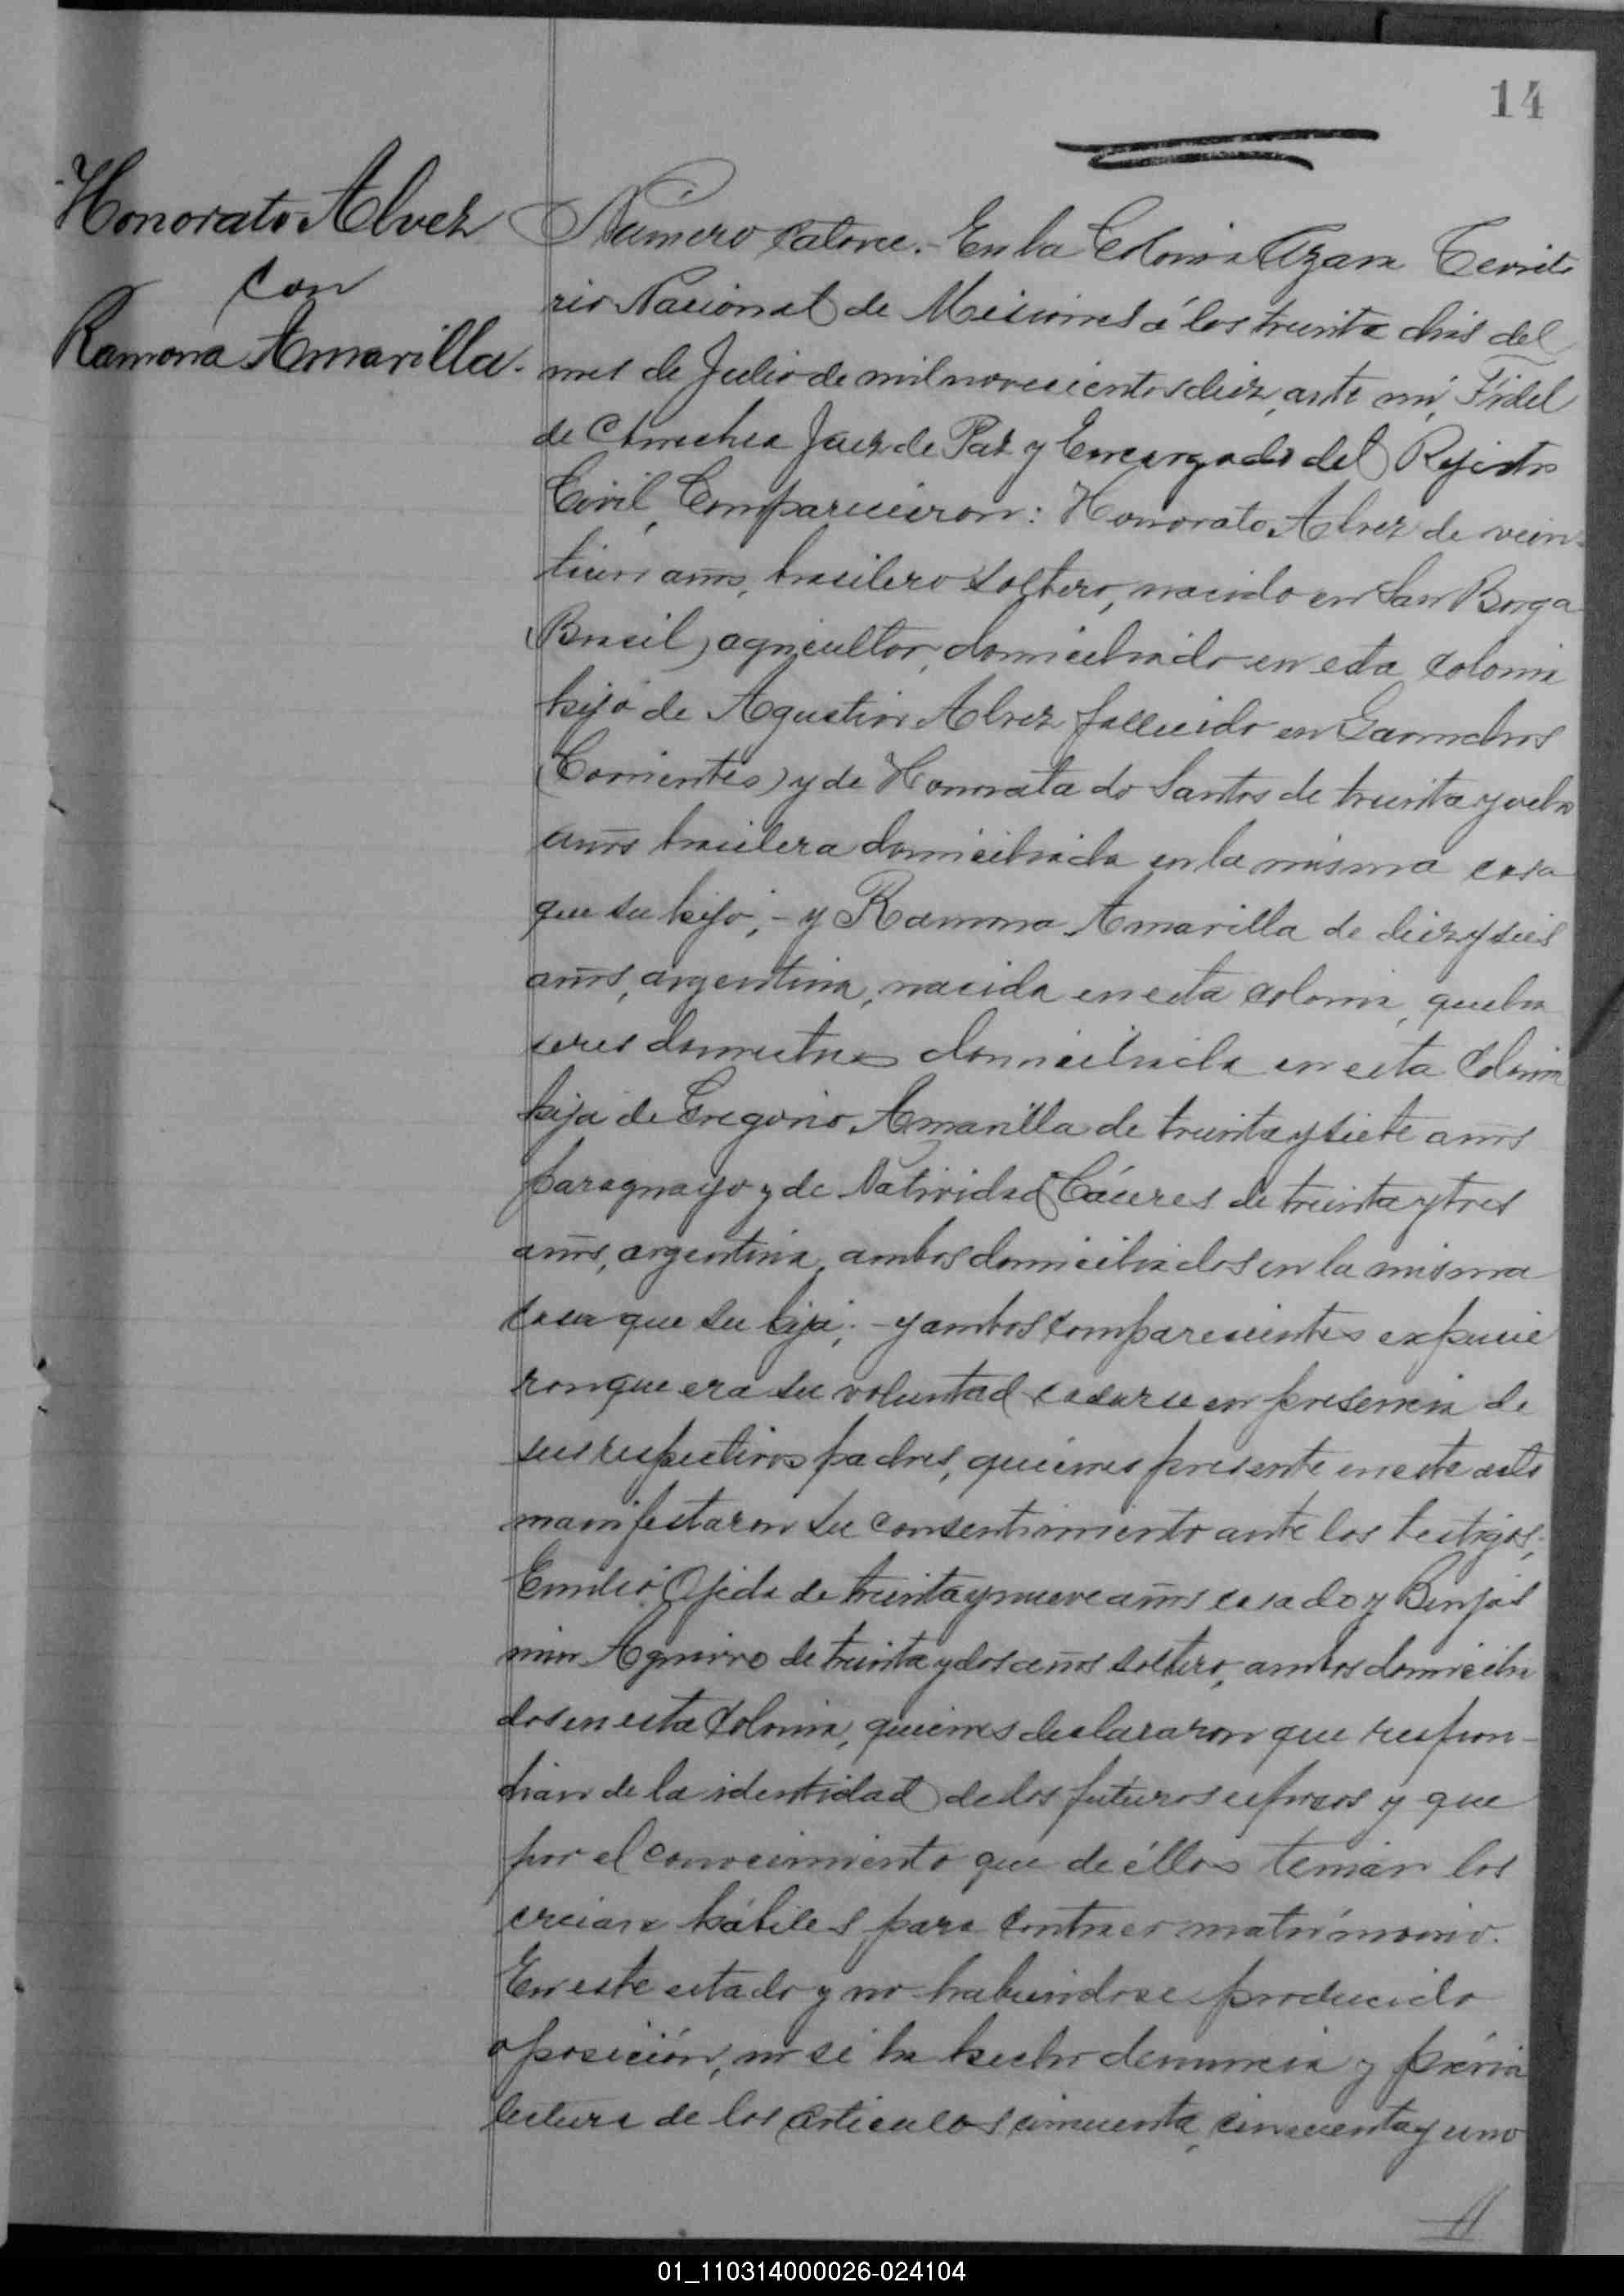 14
Honorato Alvez
con
Ramona Amarilla.
Número catorce.- En la Colonia Azara Territo
rio Nacional de Misiones á los treinta dias del
mes de Julio de mil novecientos diez, ante mi, Fidel
de Juez de Paz y Encargado del Rejistro
Civil, Comparecieron: Honorato Alvez de vein-
tiun años, brasilero soltero, nacido en San Borga
(Brasil) agricultor, domiciliado en esta colonia
hijo de Agustin Alvez fallecido en Garruchos
(Corrientes) y de Honorata do Santos de treinta y ocho
años brasilera domiciliada en la misma casa
que su hijo; - y Ramona Amarilla de diez y seis
años, argentina, nacida en esta colonia, queha
seres domesticos domiciliada en esta Colonia
hija de Gregorio Amarilla de treinta y siete años
paraguayo y de Natividad Cáceres de treinta y tres
años, argentina, ambos domiciliados en la misma
casa que su hija; - y ambos comparecientes expusie
ron que era su voluntad casarse en presencia de
sus respectivos padres, quienes presente en este acto
manifestaron su consentimiento ante los testigos;
Emilio Ojeda de treinta y nueve años casado y Benja
min Aguirre de treinta y dos años soltero, ambos domicilia
dos en esta Colonia, quienes declararon que respon-
dian de la identidad de los futuros esposos y que
por el conocimiento que de éllos tenian los
creian hábiles para contraer matrimonio.
En este estado y no habiendose producido
oposición, ni se ha hecho denuncia y prévia
lectura de los articulos cincuenta, cincuenta y uno
//
01_110314000026-024104